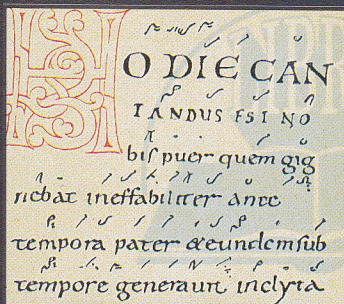 HODIE CAN
TANDUS EST NO
bis puer quem gig
nebat ineffabiliter ante
tempora pater & eundem sub
tempore generauit inclyta